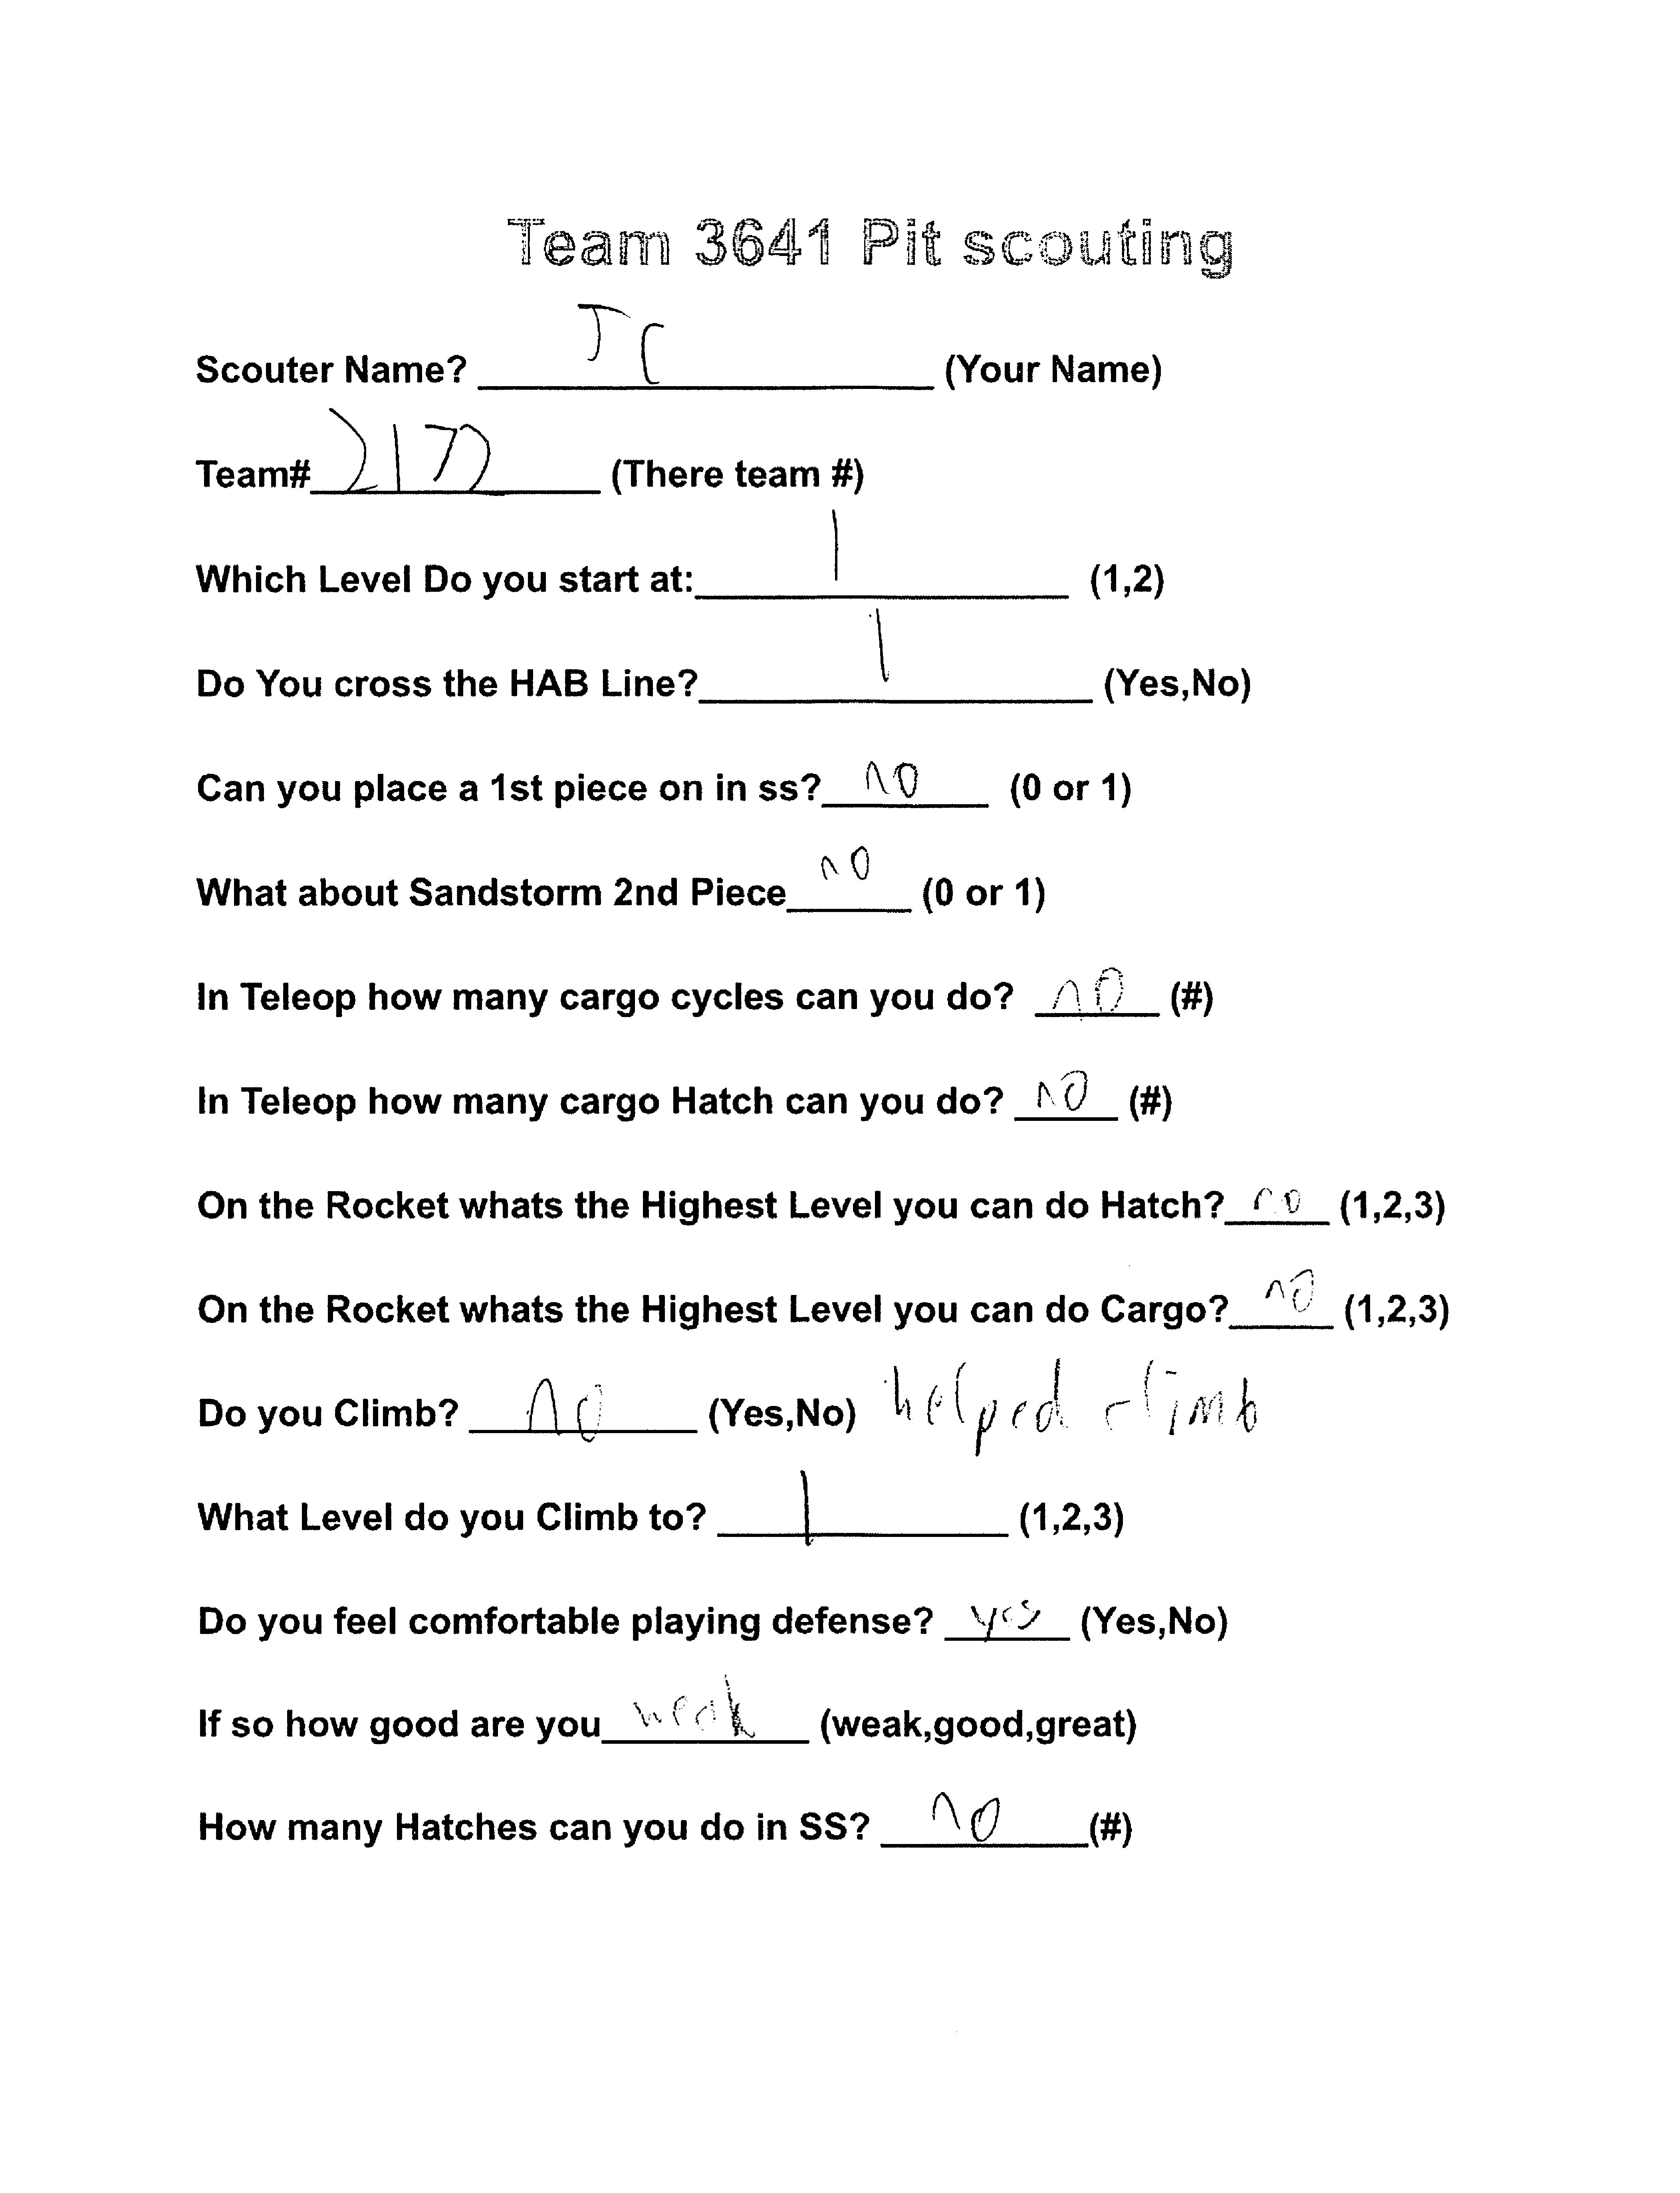 Team 3641 Pit scouting
Scouter Name? JC (Your Name)
Team# 2172 (There team #)
Which Level Do you start at: 1 (1,2)
Do You cross the HAB Line? 1 (Yes,No)
Can you place a 1st piece on in ss? no (0 or 1)
What about Sandstorm 2nd Piece no (0 or 1)
In Teleop how many cargo cycles can you do? no (#)
In Teleop how many cargo Hatch can you do? no (#)
On the Rocket whats the Highest Level you can do Hatch? no (1,2,3)
On the Rocket whats the Highest Level you can do Cargo? no (1,2,3)
Do you Climb? no (Yes,No) helped climb
What Level do you Climb to? 1 (1,2,3)
Do you feel comfortable playing defense? yes (Yes,No)
If so how good are you weak (weak,good,great)
How many Hatches can you do in SS? no (#)